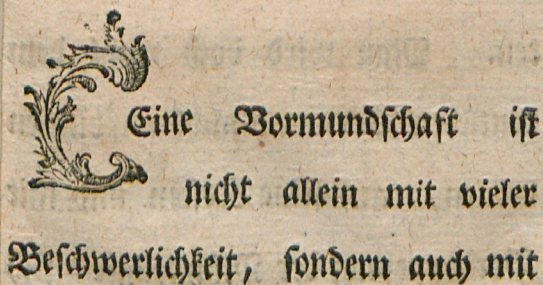 Eine Vormundschaft ist
nicht allein mit vieler
Beschwerlichkeit, sondern auch mit